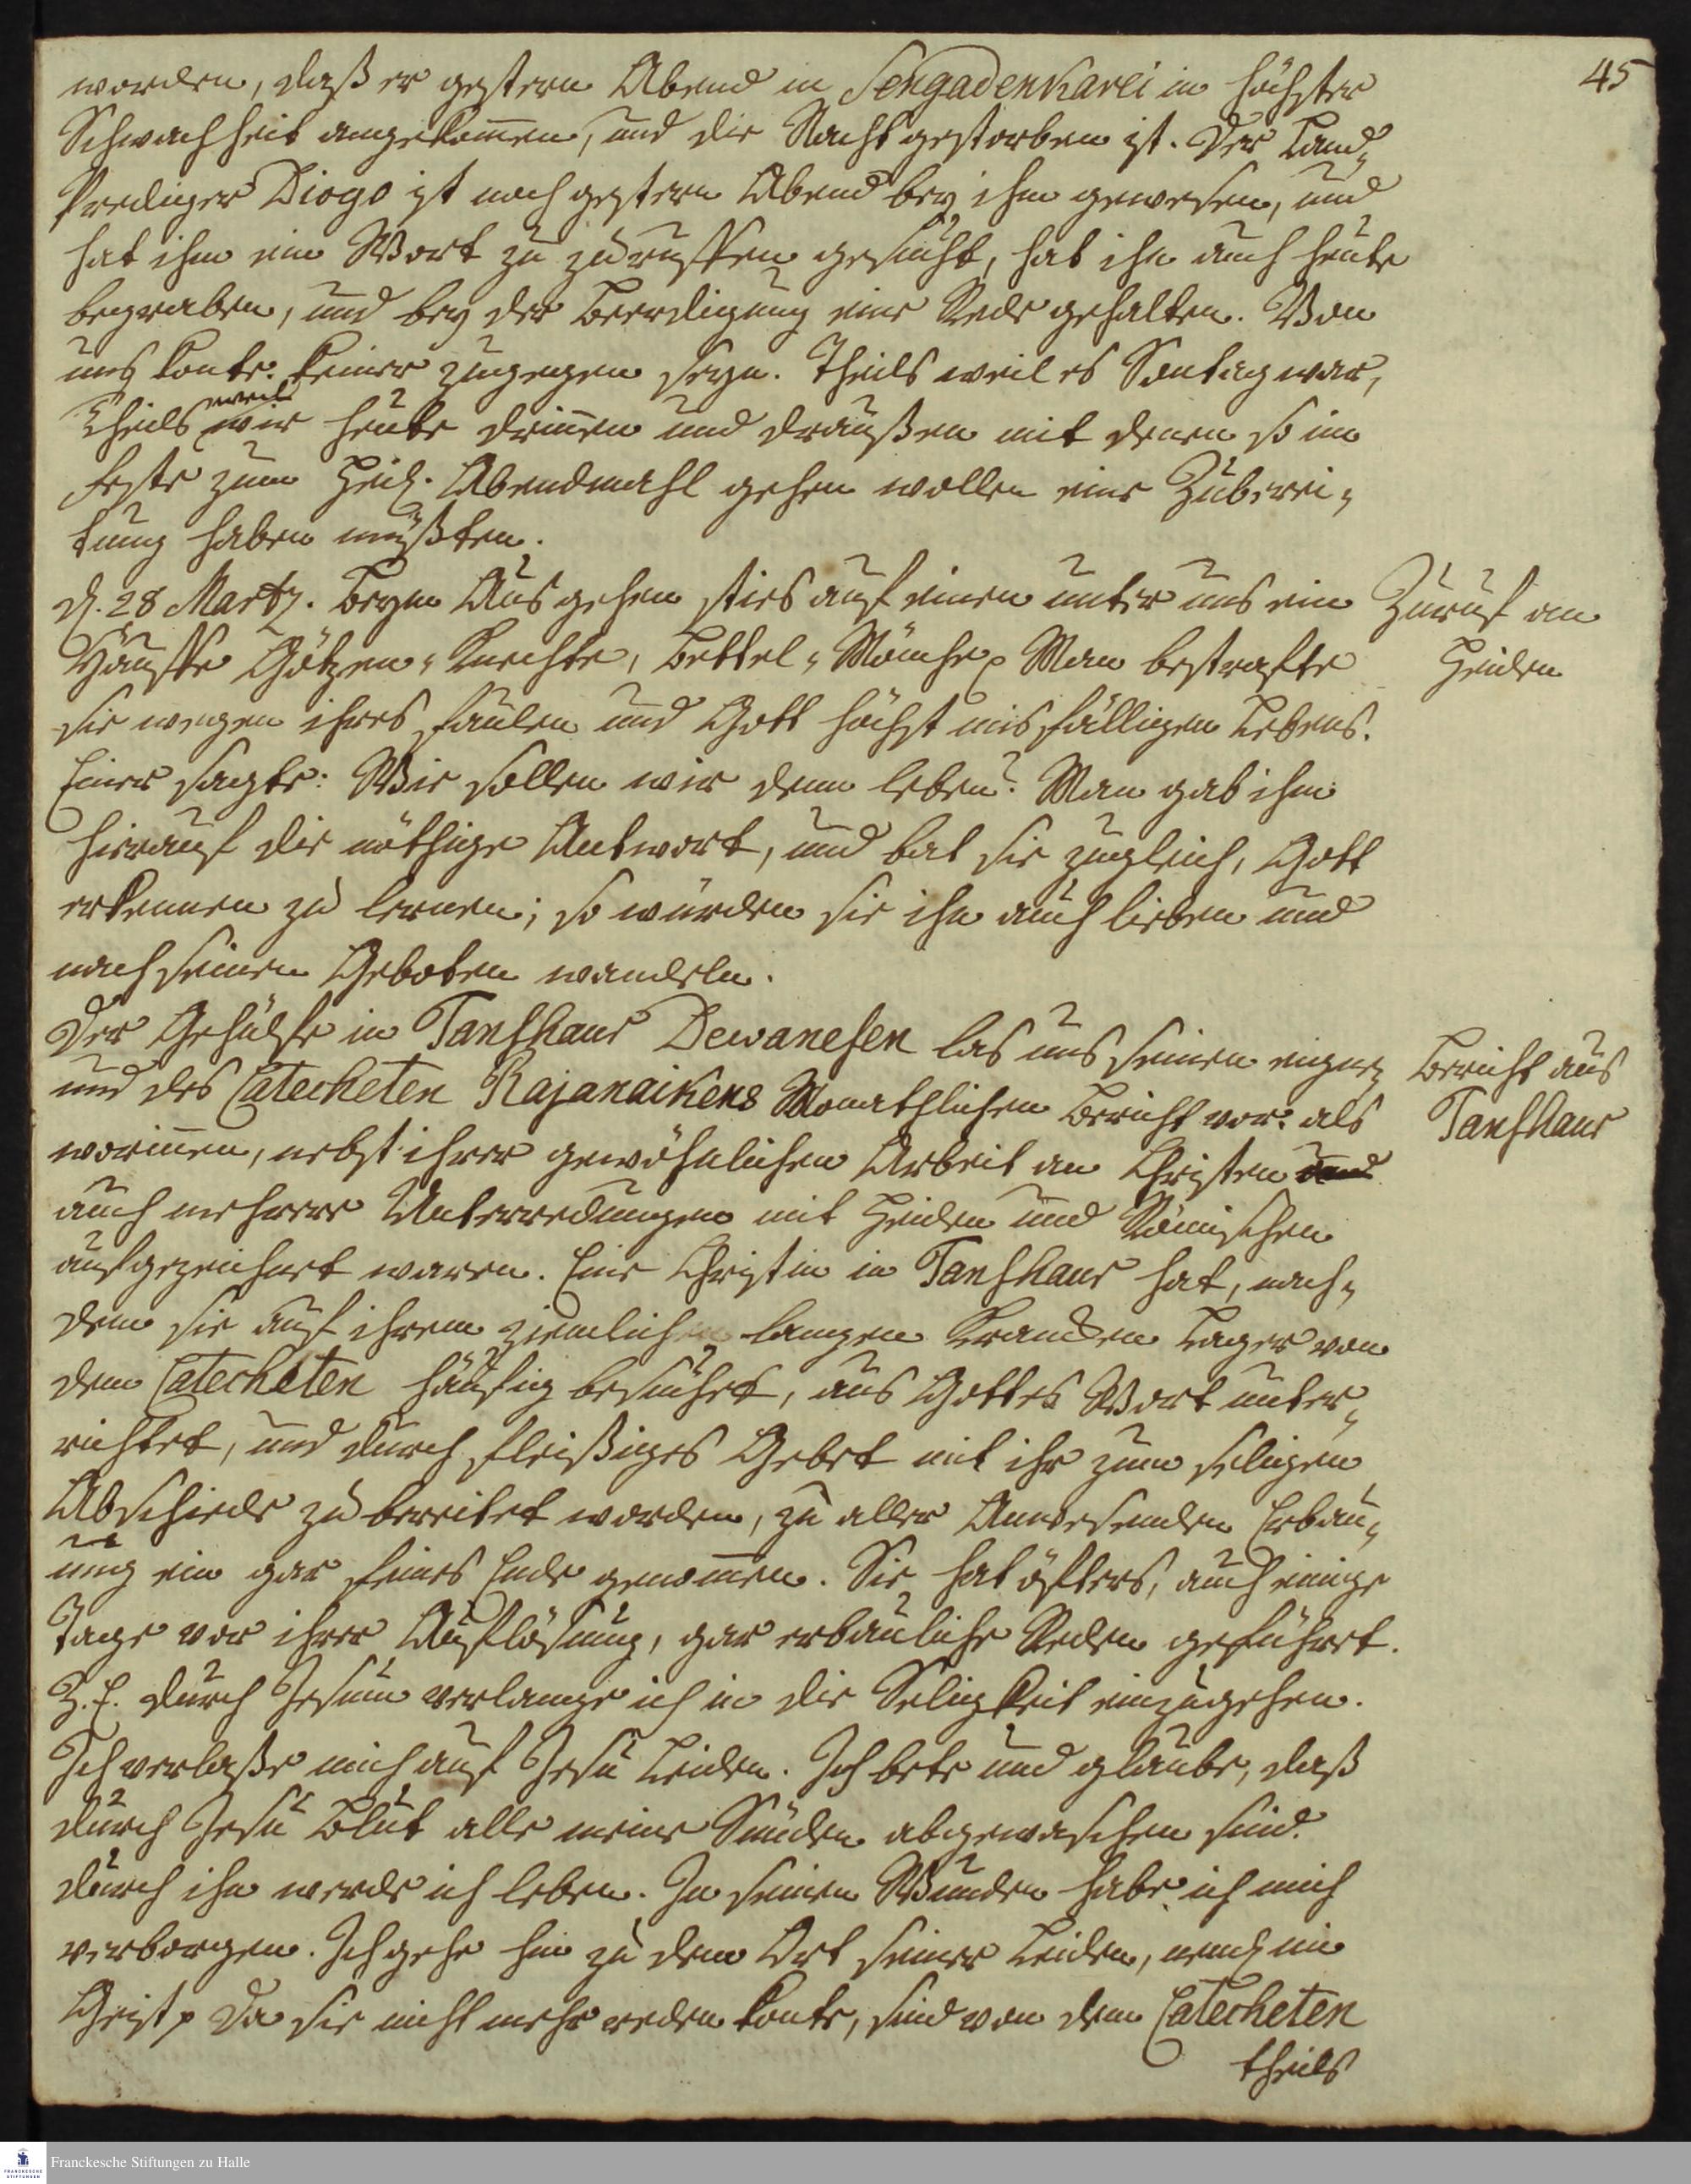 45
worden, daß er gestern Abend in Sengadenkarei in höchster
Schwachheit angekom̄en, und die Nacht gestorben ist. Der Land-
Prediger Diogo ist noch gestern Abend bey ihm gewesen, und
hat ihm ein Wort zu zuruffen gesucht, hat ihn auch heute
begraben, und bey der Beerdigung eine Rede gehalten. Von
uns konte keiner zugegen seyn. Theils weil es Sontag war,
Theils weil wir heute drin̄en und draußen mit denen so im
Feste zum Heil. Abendmahl gehen wollen eine Zuberei-
tung haben mußten.
d. 28 Martz. Beym Ausgehen sties auf einen unter uns ein
Zuruf an
Hauffe Götzen-Knechte, Bettel-Mönche p Man bestrafte
Heiden
sie wegen ihres faulen und Gott höchst misfälligen Lebens.
Einer sagte: Wie sollen wir denn leben? Man gab ihm
hierauf die nöthige Antwort, und bat sie zugleich, Gott
erkennen zu lernen; so würden sie ihn auch lieben und
nach seinen Geboten wandeln.
Der Gehülfe in Tanshaur Dewanesen las uns seinen eignen
Bericht aus
und des Catecheten Rajanaikens Monathlichen Bericht vor: als
Tanshaur
worin̄en, nebst ihrer gewöhnlichen Arbeit an Christen und
auch mehrere Unterredungen mit Heiden und Römischen
aufgezeichnet waren. Eine Christin in Tanshaur hat, nach-
dem sie auf ihrem ziemlichen langen Krancken Lager von
dem Catecheten häufig besuchet, aus Gottes Wort unter-
richtet, und durch fleißiges Gebet mit ihr zum seligen
Abschiede zubereitet worden, zu aller Anwesenden Erbau-
ung ein gar feines Ende genom̄en. Sie hat öfters, auch einige
Tage vor ihrer Auflösung, gar erbauliche Reden geführet.
Z. E. durch Jesum verlange ich in die Seligkeit einzugehen.
Ich verlaße mich auf Jesu Leiden. Ich bete und glaube, daß
durch Jesu Blut alle meine Sünden abgewaschen sind.
durch ihn werde ich leben. In seinen Wunden habe ich mich
verborgen. Ich gehe hin zu dem Ort seiner Leiden, neml. im
Geist p Da sie nicht mehr reden konte, sind von dem Catecheten
theils
Franckesche Stiftungen zu Halle
FRANCKESCHE
STIFTUNGEN